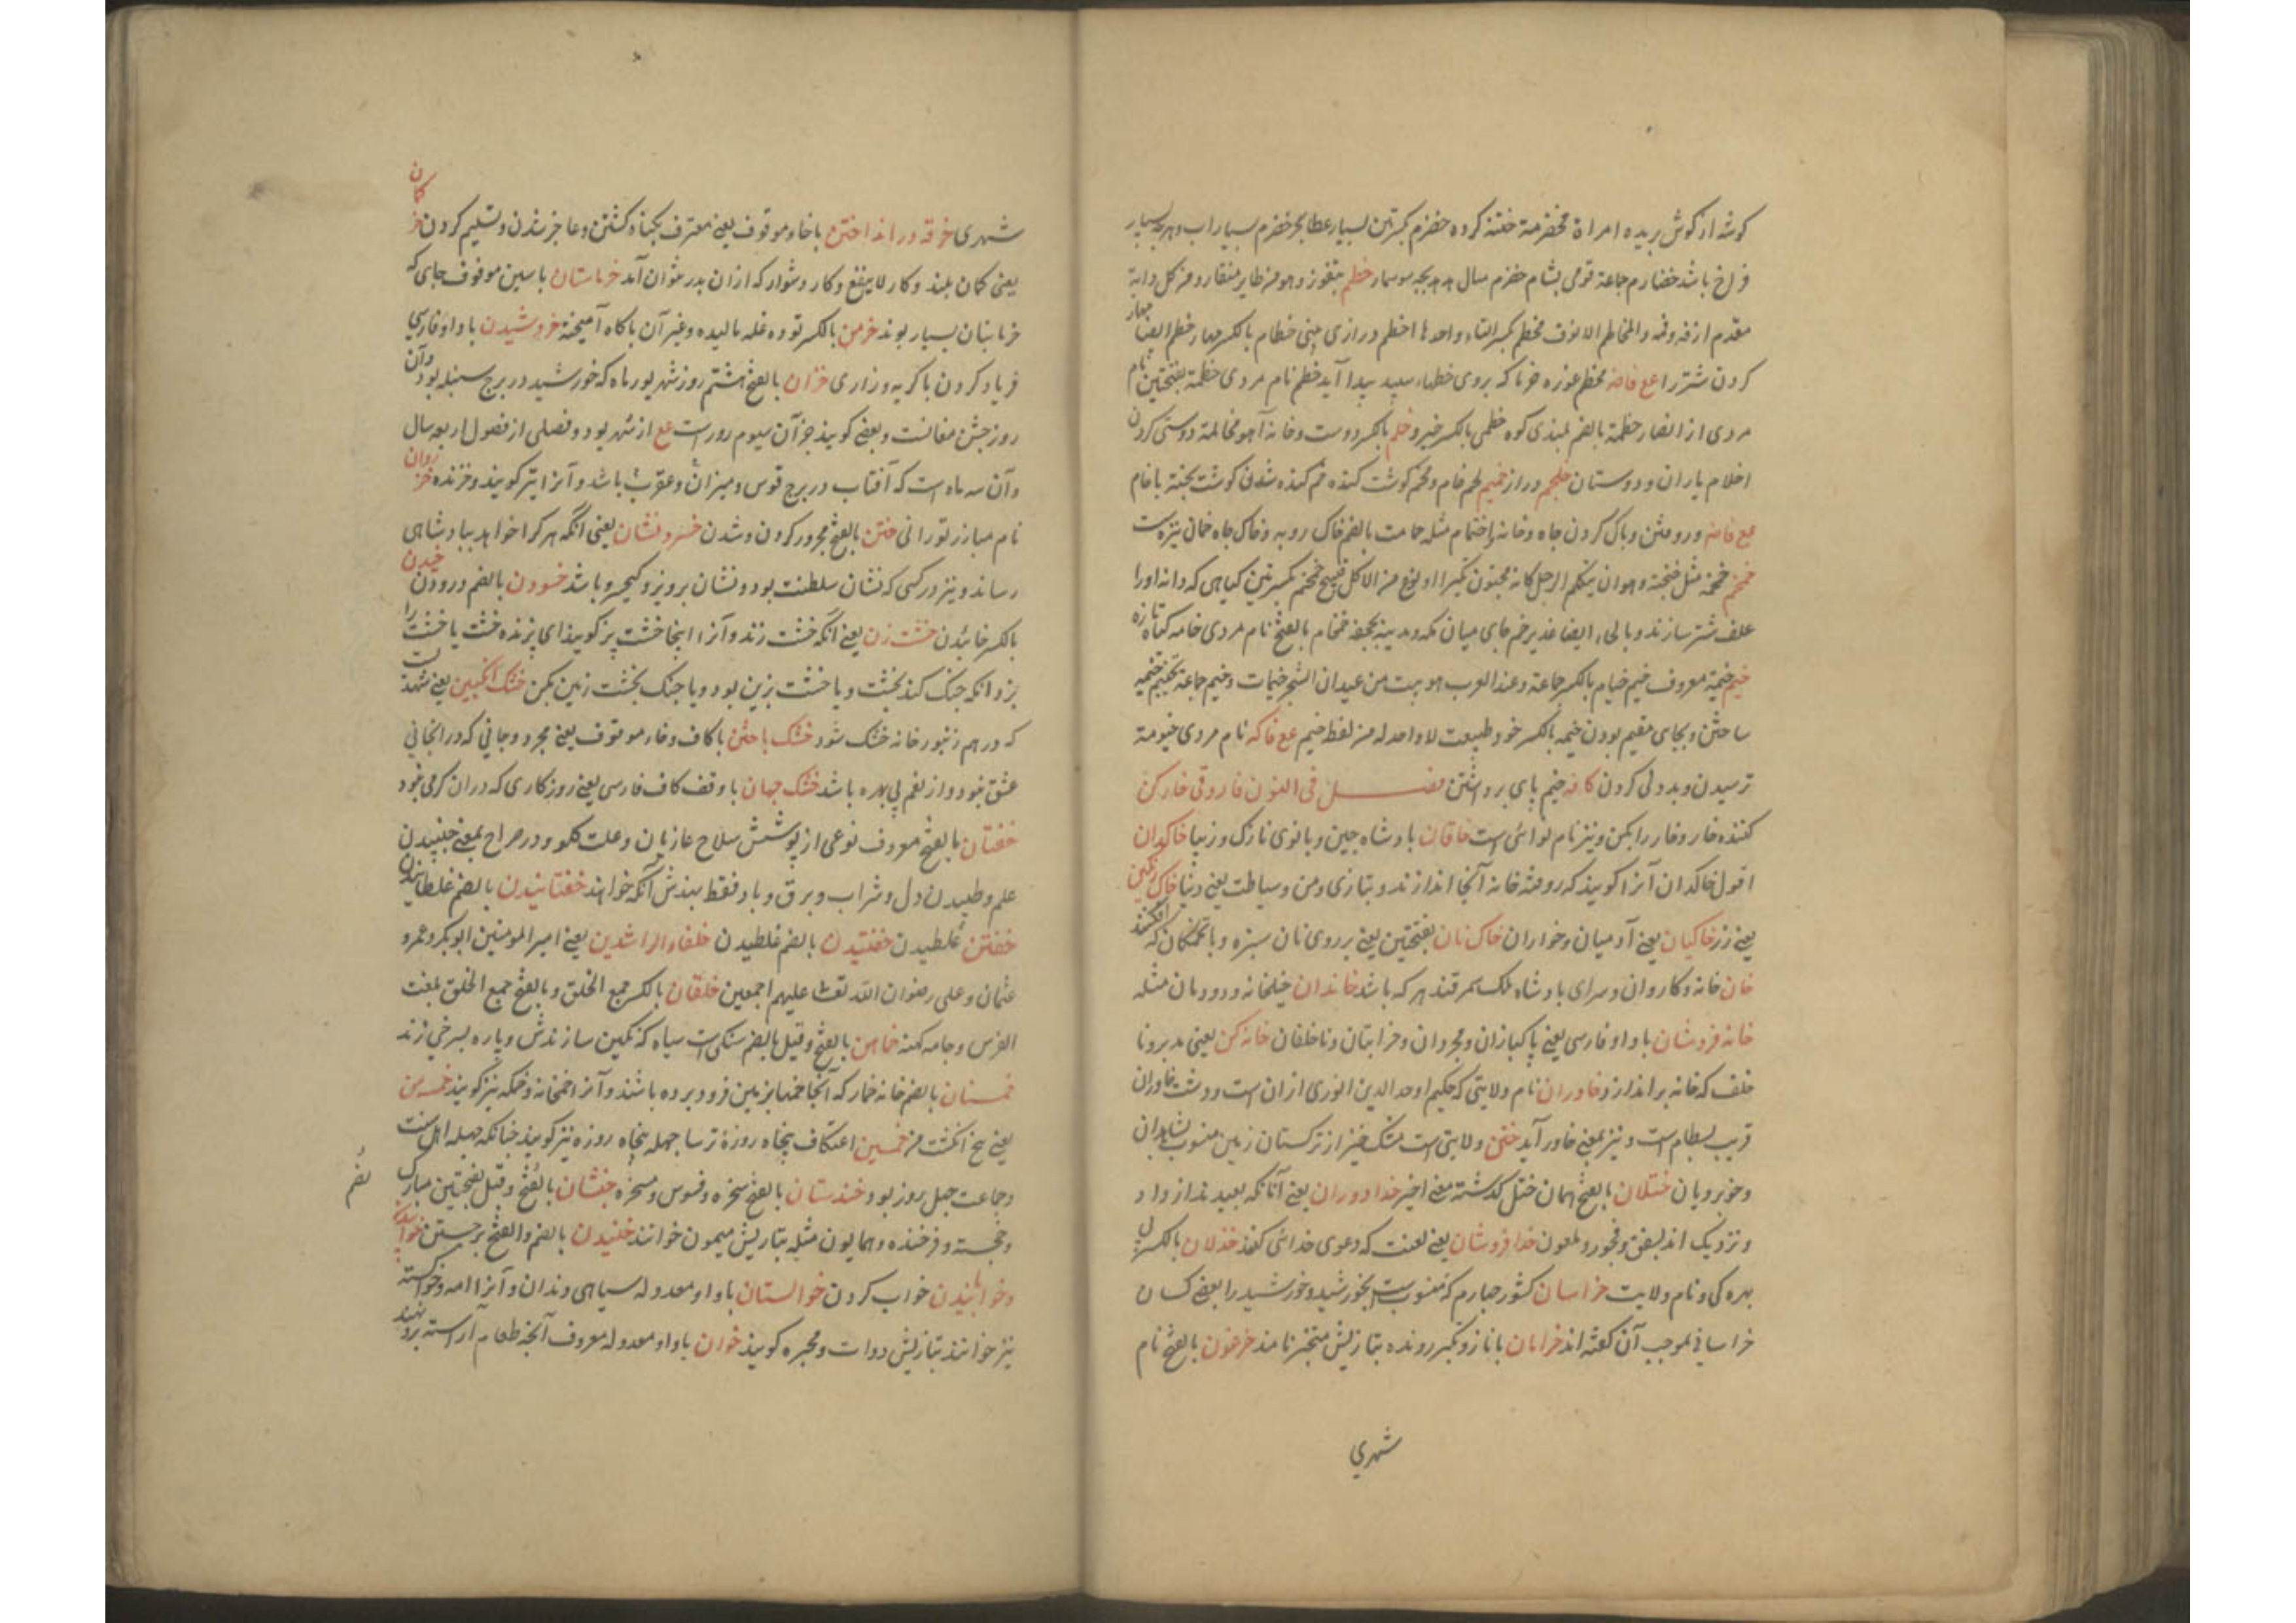 گوشه از گوش بریده امراة مخضرمة ختنه کرده خضرم بکسرتین بسیار عطا بحر خضرم بسیار اب و هرچه بسیار
فراخ باشد خضارم جماعة قومی بشام خضرم سال بچه سوسمار خطم بتفوز وهو من طایر منقار ومن کل دابة
مقدم انفه وفمه والمخاطم الانوف مخطم بکسر التاء واحدها اخطم درازی بینی خطام بالکسر مهار خطم ایضا مهار
کردن شتر را مع فاضه مخطم غوزه خرما که بروی خطهاء سپید پیدا آید خطم نام مردی خطمة بفتحتین نام
مردی از انصار خطمة بالضم بلندی کوه خطمی بالکسر خیرو خلم بالکسر دوست و خانه آهو مخالمة دوستی کردن
اخلام یاران و دوستان خلجم دراز خمیم لحم خام ومخم گوشت گنده خم گنده شدن گوشت پخته یا خام
مع فاضه و روفتن و پاک کردن چاه و خانه اختمام مثله خمامت بالضم خاک روبه و خاک چاه خمان نیزه ست
خمخم خمخمة مثل خنخنة وهو ان یتکلم الرجل کانه مخنون تکبرا او نوع من الاکل قبیح خمخم بکسرتین گیاهی که دانه اورا
علف شتر سازند و بالحاء ایضا غدیر خم جای میان مکه و مدینه بجحفه خمام بالفتح نام مردی خامه گیاه تازه
خیم خیمة معروف خیم خیام بالکسر جماعة وعند العرب هو بیت من عیدان الشجر خیمات و خیم جماعة تخییم خیمه
ساختن و بجای مقیم بودن خیمه بالکسر خو و طبیعت لا واحد له من لفظ خیم مع فاکه نام مردی خیومة
ترسیدن و بددلی کردن کافه خیم پای برداشتن فصل فی النون فاروقی خارکن
کننده خار و خار را بکن و نیز نام نوائی است خاقان بادشاه چین و بانوی نازک و زیبا خاکدان
اقول خاکدان آنرا گویند که روفته خانه آنجا اندازند و بتازی دمن و سباطت یعنی دنیا خاک رنگین
یعنی زر خاکیان یعنی آدمیان و خواران خاک نان بفتحتین یعنی بر روی نان سبزه و یا تخمکان که افکنند
خان خانه و کاروان و سرای بادشاه ملک سمرقند هر که باشد خاندان خیلخانه و دودمان مثله
خانه فروشان با واو فارسی یعنی پاکبازان و مجردان و خراباتیان و ناخلفان خانه کن یعنی مدبر و نا
خلف که خانه براندازد خاوران نام ولایتی که حکیم اوحد الدین انوری ازان است و دشت خاوران
قریب بسطام است و نیز بمعنی خاور آید ختن ولایتی است مشک خیز از ترکستان زمین منسوب بشاهدان
و خوبرویان ختلان بالفتح همان ختل گذشته بمعنی اخیر خدا دوران یعنی آنانکه بعید اند از داد
و نزدیک اند بفسق و فجور و ملعون خدا فروشان یعنی لعنت که دعوی خدائی کنند خذلان بالکسر بی
بهره‌گی و نام ولایت خراسان کشور چهارم که منسوب است بخورشید و خورشید را بعضی کسان
خراسانی بموجب آن گفته اند خرامان با ناز و تکبر رونده بتازیش متبختر نامند خرخون بالفتح نام
شهری
شهری خرقه در انداختن با خاء موقوف یعنی معترف بگناه گشتن و عاجز شدن و تسلیم کردن خر کمان
یعنی کمان بلند و کار لاینفع و کار دشوار که ازان بدر نتوان آمد خرماستان با سین موقوف جای که
خرمابنان بسیار بوند خرمن بالکسر توده غله مالیده و غیر آن با کاه آمیخته خروشیدن با واو فارسی
فریاد کردن با گریه و زاری خزان بالفتح هشتم روز شهریور ماه که خورشید در برج سنبله بود و آن
روز جشن مغانست و بعضی گویند جز آن سیوم روز است مع از شهریور و فصلی از فصول اربعه سال
و آن سه ماه است که آفتاب در برج قوس و میزان و عقرب باشد و آنرا تیر گویند و خزنده خزروان
نام مبارز تورانی ختن بالفتح مجرور کردن و شدن خسرو نشان یعنی آنکه هر کرا خواهد ببادشاهی
رساند و نیز در کسی که نشان سلطنت بود و نشان پرویز و کیخسرو باشد خسودن بالضم درودن خیدن
بالکسر خائیدن خشت زن یعنی آنکه خشت زند و آنرا اینجا خشت پز گویند ای پزنده خشت یا خشت را
بزد آنکه جنگ کند بخشت و یا خشت بزین بود و یا جنگ بخشت زمین بکن خشک انگبین یعنی شهد ست
که در هم زنبور خانه خشک شود خشک باختن با کاف و خاء موقوف یعنی مجرد و جائی که در آنجائی
عشق نبود و از نغم بی بهره باشد خشک جهان با وقف کاف فارسی یعنی روزگاری که دران کرمی نبود
خفتان بالفتح معروف نوعی از پوشش سلاح غازیان و علت گلو و در صراح بمعنی جنبیدن
علم و طپیدن دل و شراب و برق و باد فقط بهندش آنکه خوانند خفتانیدن بالضم غلطانیدن
خفتن غلطیدن خفتیدن بالضم غلطیدن خلفاء الراشدین یعنی امیر المومنین ابوبکر و عمر و
عثمان و علی رضوان الله تعالی علیهم اجمعین خلقان بالکسر جمع الخلق و بالفتح جمع الخلق بلغت
الفرس و جامه کهنه خماهن بالفتح و قیل بالضم سنگی است سیاه که نگین سازندش و پاره بسرخی زند
خمستان بالضم خانه خمار که آنجا خمها بزمین فرو برده باشند و آنرا خمخانه و خمکه نیز گویند خمسه من
یعنی پنج انگشت من خمسین اعتکاف پنجاه روزه ترسا چهله پنجاه روزه نیز گویند چنانکه چهله اهل سنت
و جماعت چهل روز بود خندستان بالفتح سخره و فسوس و مسخره خنشان بالفتح و قیل بفتحتین مبارک بضم
و خجسته و فرخنده و همایون مثله بتازیش میمون خوانند خنیدن بالضم و الفتح برجستن خوابیدن
و خوابانیدن خواب کردن خوالستان با واو معدوله سیاهی دندان و آنرا امه و خواسته
نیز خوانند بتازیش دوات و محبره گویند خوان با واو معدوله معروف آنچه طعام آراسته برو نهند